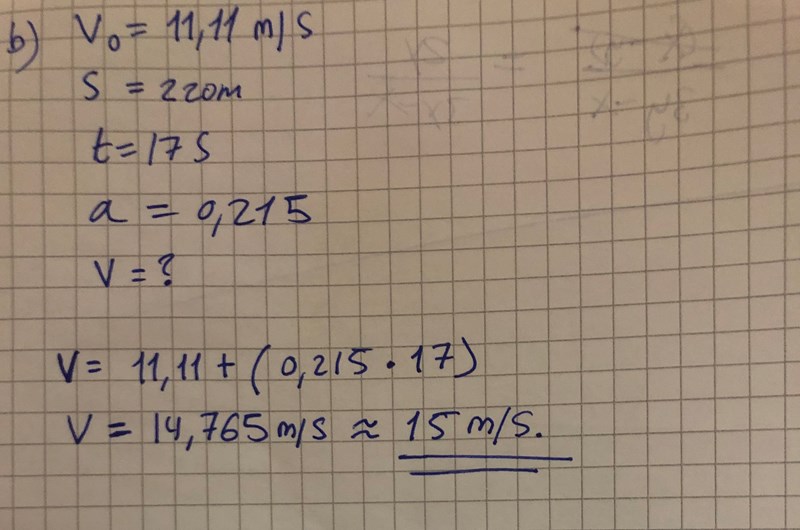 b) V₀ = 11,11 m/s
S = 220m
t = 17 S
a = 0,215
V = ?
V = 11,11 + (0,215 · 17)
V = 14,765 m/s ≈ 15 m/s.